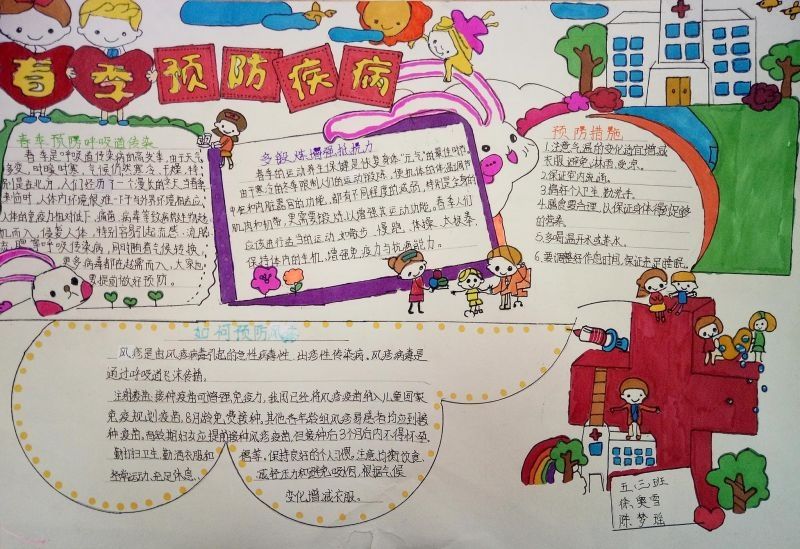 春季预防疾病
春季预防呼吸道传染
春季是呼吸道传染病的高发季,由于天气
多变,时暖时寒,气候仍然寒冷、干燥,特
别是在北方,人们经历了一个漫长的冬天,当春季
来临时,人体内环境很难一下子与外界环境相适应,
人体的免疫力相对低下,
机而入,侵袭人体,特别容易引起流感、
等呼吸传染病,同时随着气候转换,
更多病毒都在
要提前做好预防。
多锻炼增强抵抗力
春季的运动养生保健是恢复身体“元气”的最佳时节。
由于寒冷的冬季限制了人们的运动锻炼,使机体的体温调节
中枢和内脏器官的功能,都有不同程度的减弱,特别是全身的
肌肉和韧带,更需要锻炼以增强其运动功能。春季人们
应该进行适当的运动,如散步、慢跑、体操、太极拳
保持体内的生机,增强免疫力与抗病能力。
预防措施
1.注意气温的变化适宜增减
衣服,避免淋雨、受凉。
2.保证室内通
3.搞好个人卫生,勤洗手。
4.膳食要合理,以保证身体得到足够
的营养。
5.多喝温开水或茶水。
6.要调整好作息时间,保证充足睡眠。
如何预防风疹
风疹是由风疹病毒引起的急性病毒性、出疹性传染病。风疹病毒是
通过呼吸道飞沫传播。
注射疫苗:接种疫苗可增强免疫力,我国已经将风疹疫苗纳入儿童国家
免疫规划疫苗,8月龄免费接种。其他各年龄组风疹易感者均应到接
种疫苗,育龄期妇女应提前接种风疹疫苗,但接种后3个月内不得怀孕。
勤打扫卫生,勤洒衣服和 褥等,保持良好的个人习惯。注意均衡饮食、
经常运动、充足休息、 减轻压力和避免吸烟,根据气候
变化增减衣服。
五、三班
徐奥雪
陈梦瑶